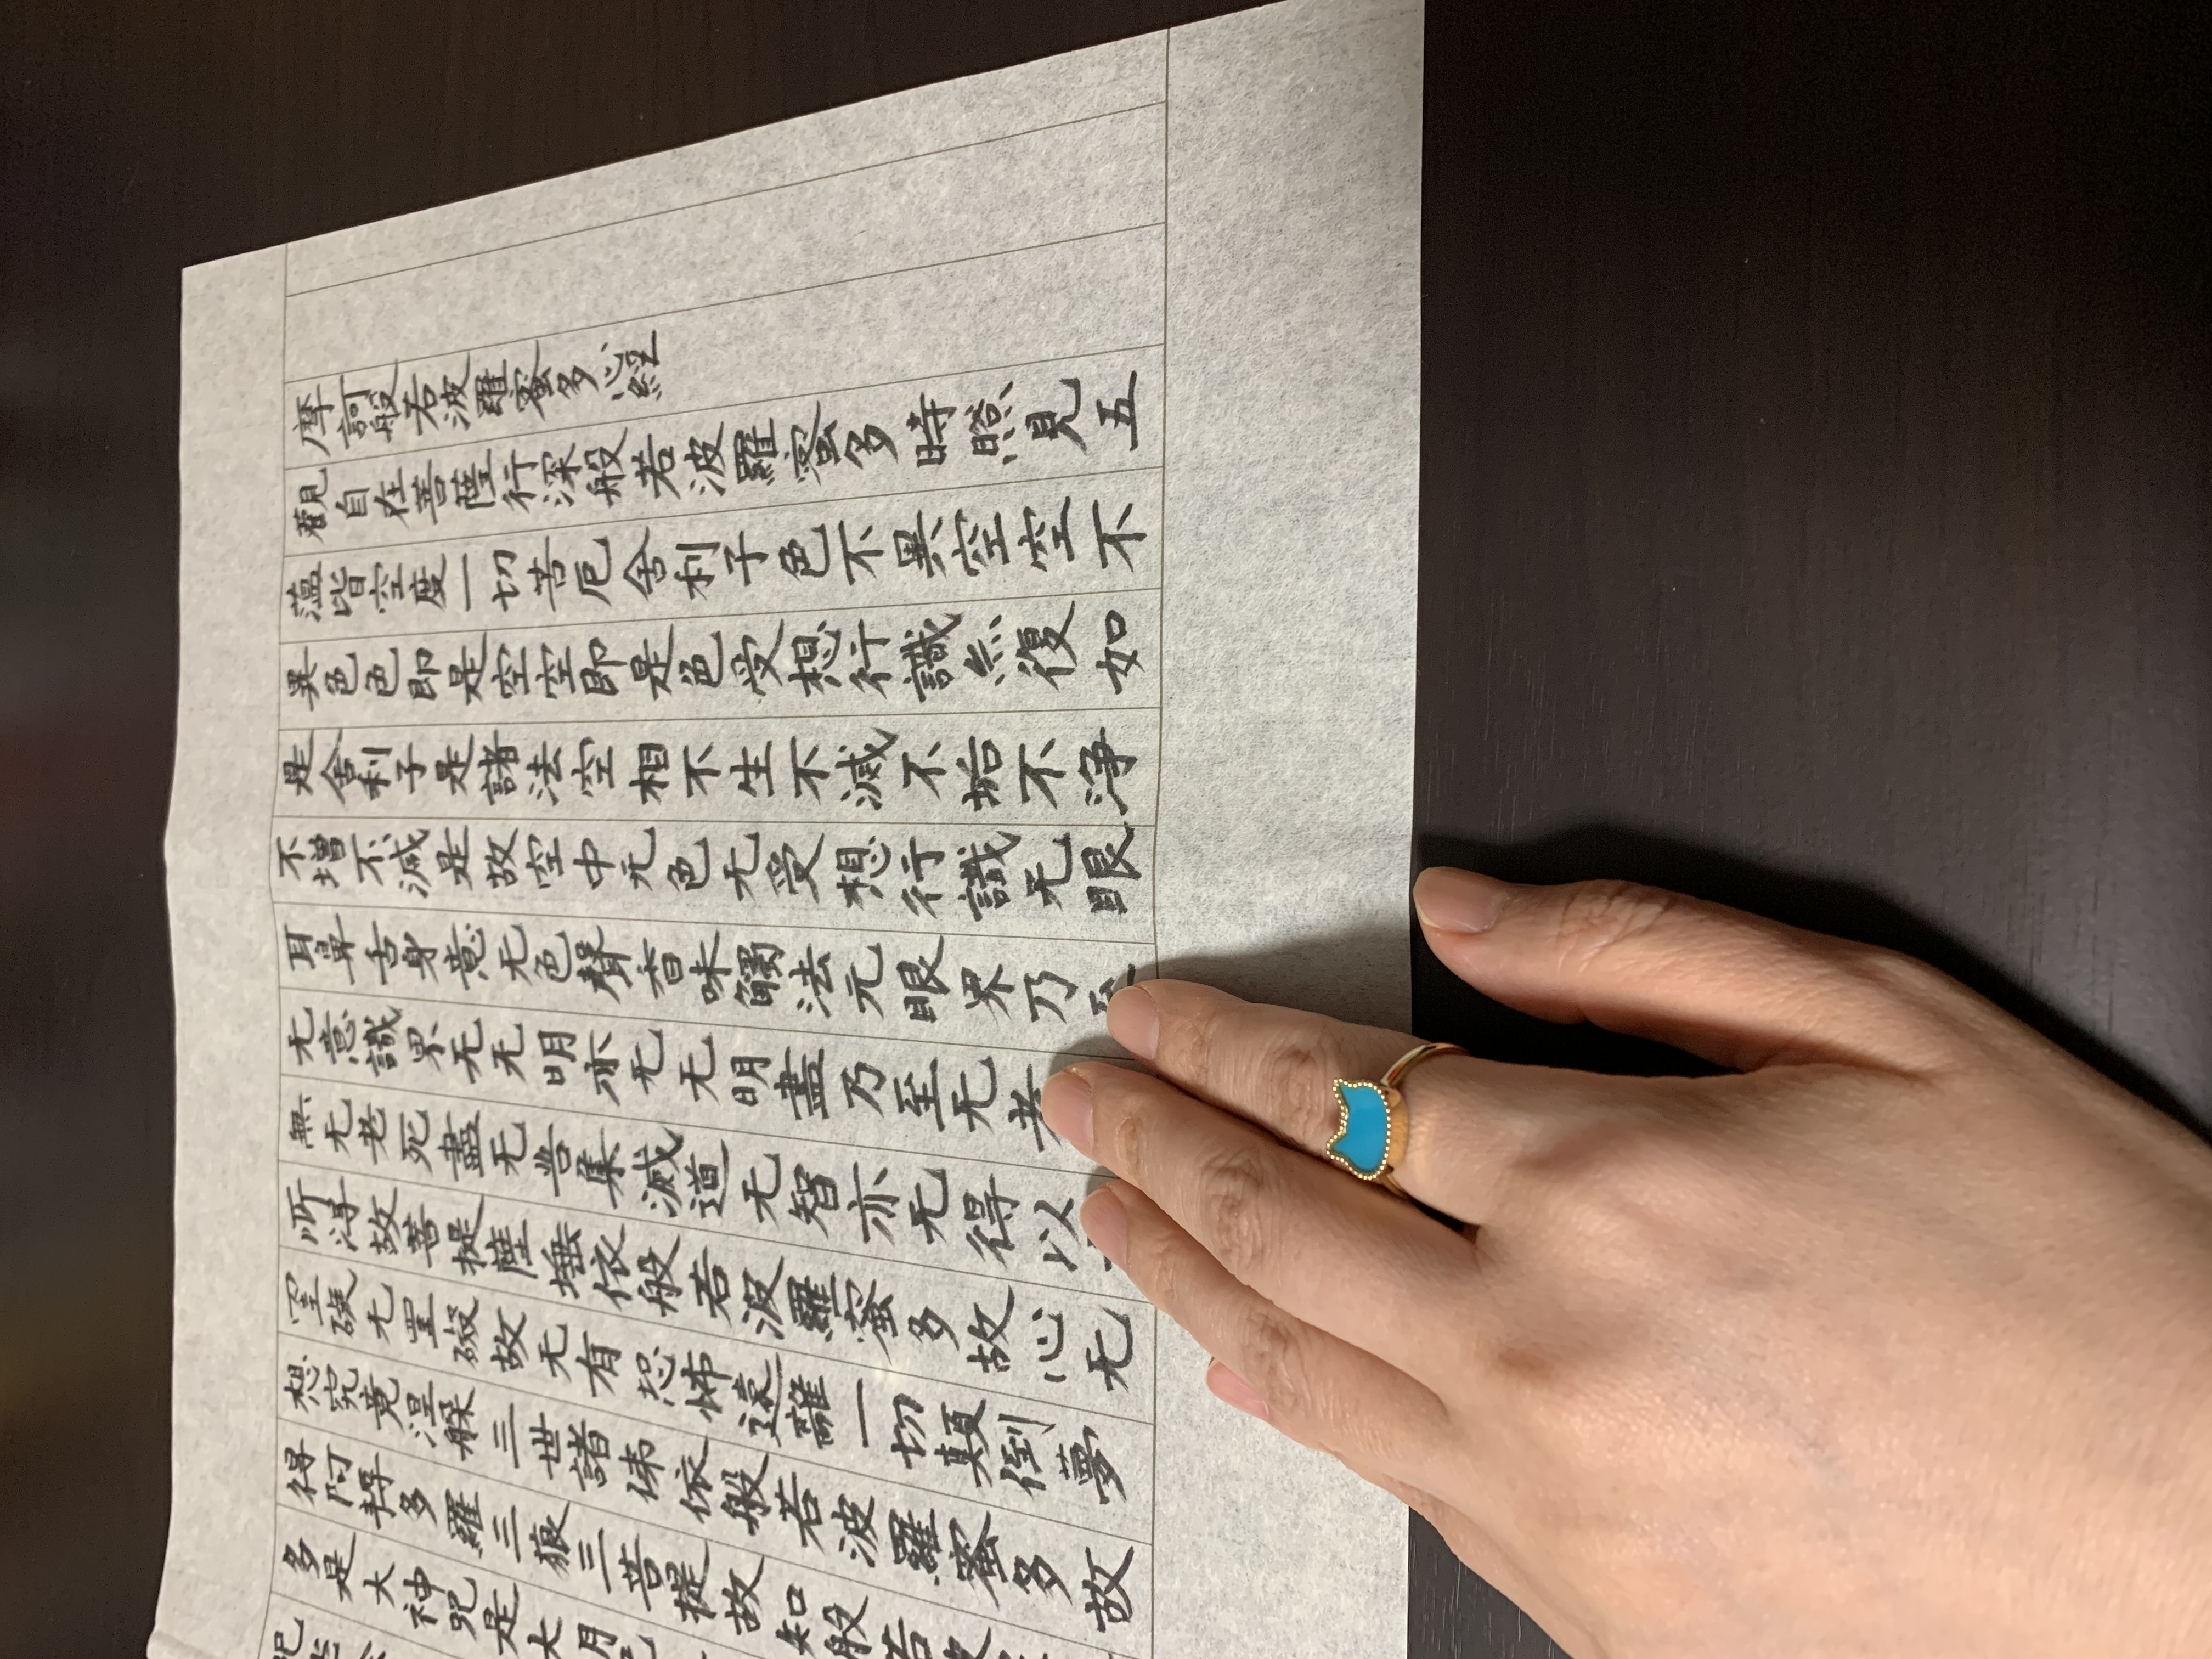 摩訶般若波羅蜜多心經
觀自在菩薩行深般若波羅蜜多時照見五
蘊皆空度一切苦厄舍利子色不異空空不
異色色即是空空即是色受想行識亦復如
是舍利子是諸法空相不生不滅不垢不净
不增不減是故空中无色无受想行識无眼
耳鼻舌身意无色聲香味觸法无眼界乃至
无意識界无无明亦无无明盡乃至无老
無无老死盡无苦集滅道无智亦无得以
所得故菩提薩埵依般若波羅蜜多故心无
罣礙无罣礙故无有恐怖遠離一切顛倒夢
想究竟涅槃三世諸佛依般若波羅蜜多故
得阿耨多羅三藐三菩提故知般若波
多是大神咒是大明